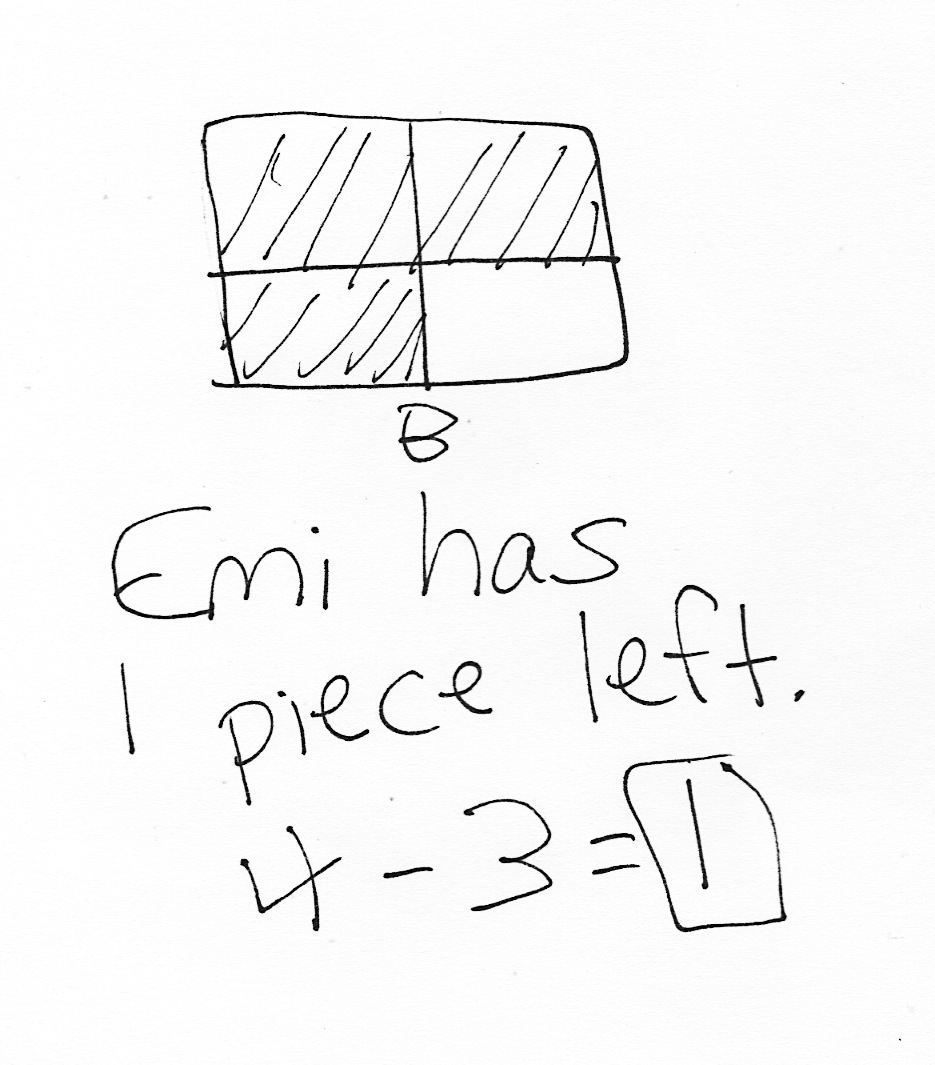 B
Emi has
1 piece left.
4 - 3 = 1